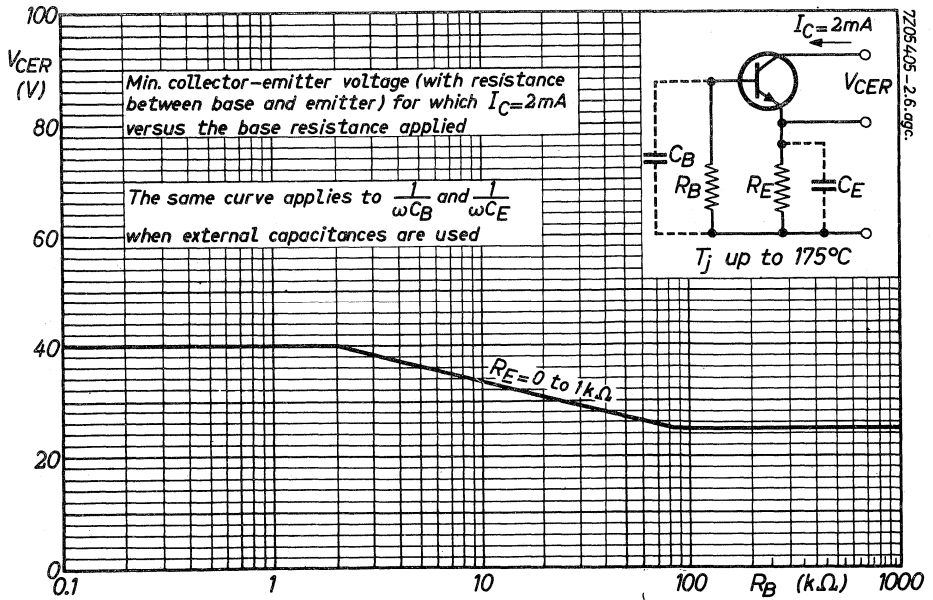 100
V_CER
(V)
80
60
40
20
0
Min. collector-emitter voltage (with resistance
between base and emitter) for which I_C=2mA
versus the base resistance applied
The same curve applies to 1/ωC_B and 1/ωC_E
when external capacitances are used
I_C=2mA
V_CER
C_B
R_B
R_E
C_E
T_j up to 175°C
7Z05405-2.6.agc.
R_E=0 to 1kΩ
0.1
1
10
100
R_B (kΩ)
1000